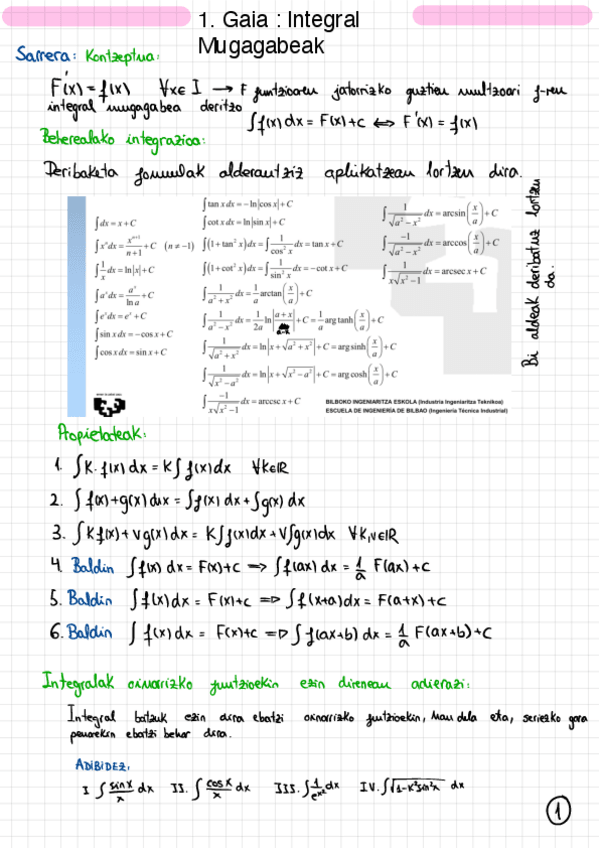 1. Gaia : Integral
Mugagabeak
Sarrera: Kontzeptua:
F'(x) = f(x) ∀x∈ I → F funtzioaren jatorrizko guztien multzoari f-ren
integral mugagabea deritzo
∫f(x) dx = F(x)+c ⇔ F'(x) = f(x)
Beherealako integrazioa:
Deribaketa formulak alderantziz aplikatzean lortzen dira.
∫dx = x + C
∫xⁿdx = xⁿ⁺¹/(n+1) + C (n ≠ −1)
∫1/x dx = ln|x| + C
∫aˣdx = aˣ/ln a + C
∫eˣdx = eˣ + C
∫sin x dx = −cos x + C
∫cos x dx = sin x + C
∫tan x dx = −ln|cos x| + C
∫cot x dx = ln|sin x| + C
∫(1+tan² x)dx = ∫1/cos² x dx = tan x + C
∫(1+cot² x)dx = ∫1/sin² x dx = −cot x + C
∫1/(a²+x²) dx = 1/a arctan(x/a) + C
∫1/(a²−x²) dx = 1/2a ln|(a+x)/(a-x)| + C = 1/a arg tanh(x/a) + C
∫1/√(a²+x²) dx = ln|x+√(a²+x²)| + C = arg sinh(x/a) + C
∫1/√(x²−a²) dx = ln|x+√(x²−a²)| + C = arg cosh(x/a) + C
∫−1/(x√(x²−1)) dx = arccsc x + C
∫1/√(a²−x²) dx = arcsin(x/a) + C
∫−1/√(a²−x²) dx = arccos(x/a) + C
∫1/(x√(x²−1)) dx = arcsec x + C
Bi aldeak deribatuz lortzen
da.
BILBOKO INGENIARITZA ESKOLA (Industria Ingeniaritza Teknikoa)
ESCUELA DE INGENIERÍA DE BILBAO (Ingeniería Técnica Industrial)
Propietateak:
1. ∫K·f(x) dx = K∫f(x)dx ∀K∈ℝ
2. ∫f(x)+g(x) dx = ∫f(x) dx + ∫g(x) dx
3. ∫Kf(x)+Vg(x)dx = K∫f(x)dx + V∫g(x)dx ∀K,V∈ℝ
4. Baldin ∫f(x) dx = F(x)+c ⇒ ∫f(ax) dx = 1/a F(ax)+C
5. Baldin ∫f(x)dx = F(x)+c ⇒ ∫f(x+a)dx = F(a+x)+c
6. Baldin ∫f(x) dx = F(x)+c ⇒ ∫f(ax+b) dx = 1/a F(ax+b)+C
Integralak oinarrizko funtzioekin ezin direnean adierazi:
Integral batzuk ezin dira ebatzi oinarrizko funtzioekin, hau dela eta, seriezko gara
penarekin ebatzi behar dira.
ADIBIDEZ,
I ∫sinx/x dx II. ∫cosx/x dx III. ∫1/eˣ² dx IV. ∫√(1-K²sin²x) dx
1